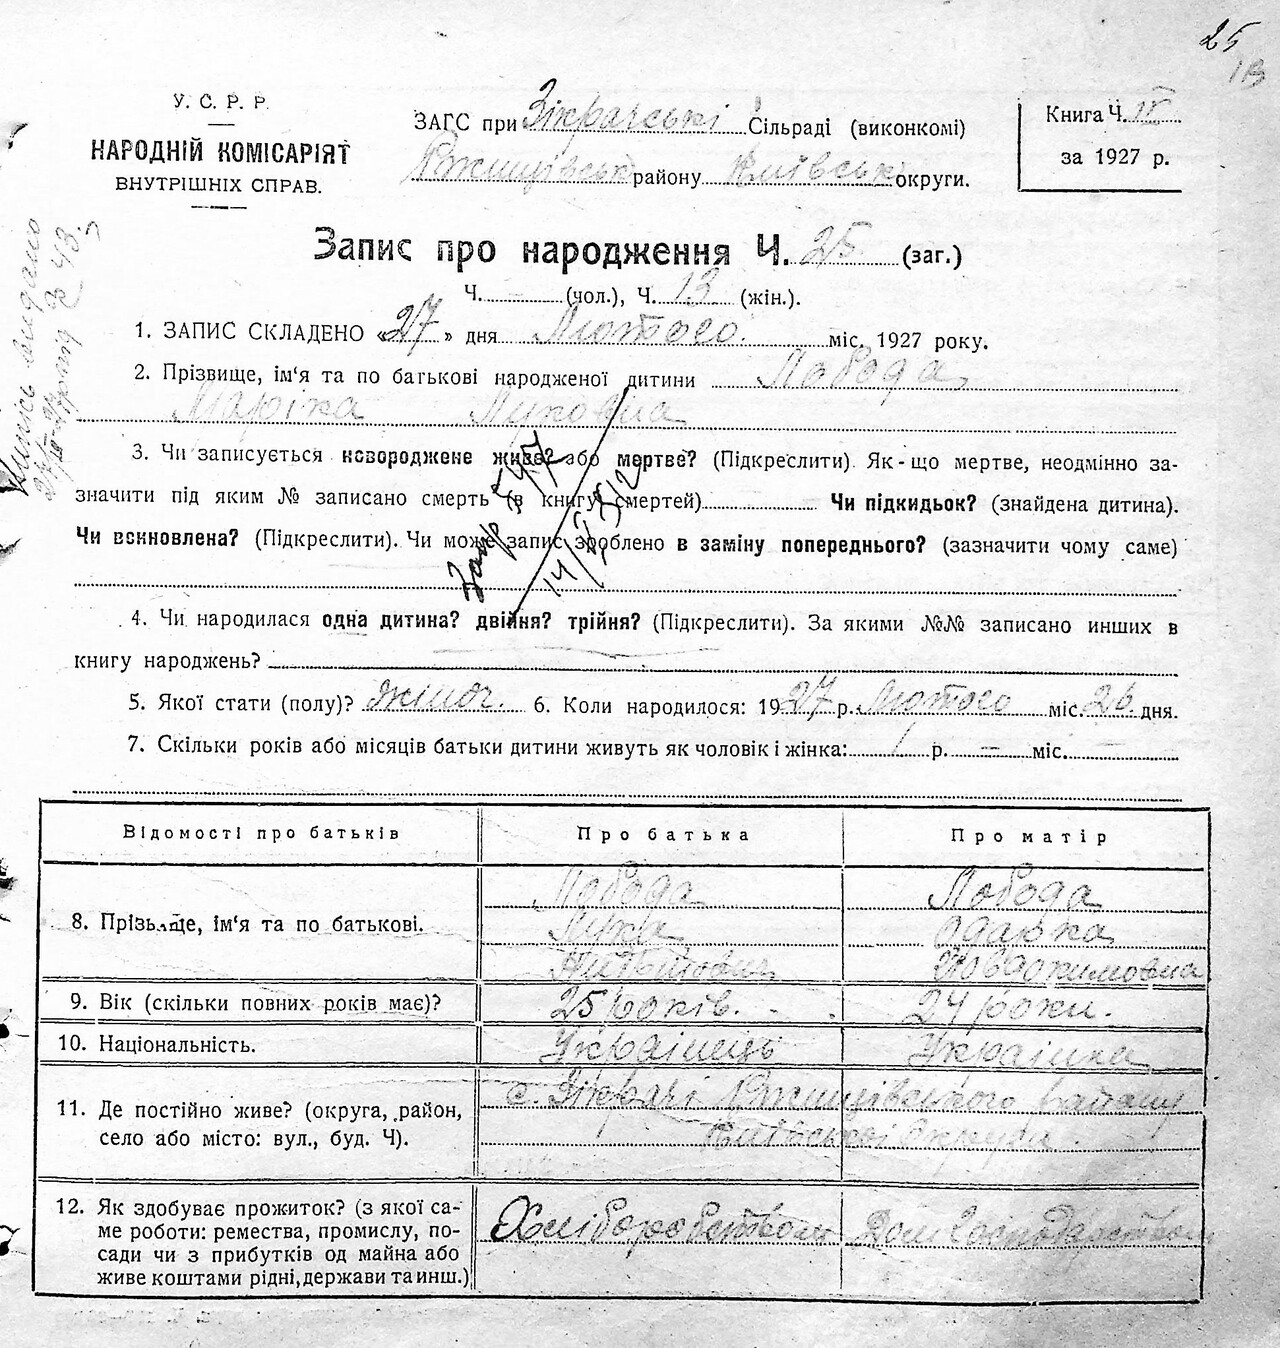 25
У. С. Р. Р.
НАРОДНІЙ КОМІСАРІЯТ
ВНУТРІШНІХ СПРАВ.
ЗАГС при Зікрачські Сільраді (виконкомі)
Ржищівськ району Київськ округи.
Книга Ч. IV
за 1927 р.
Запис про народження Ч. 25 (заг.)
Ч. — (чол.), Ч. 13 (жін.).
1. ЗАПИС СКЛАДЕНО «27» дня Лютого міс. 1927 року.
2. Прізвище, ім‘я та по батькові народженої дитини Лобода
Маріка Луковна
3. Чи записується новороджене живе? або мертве? (Підкреслити). Як-що мертве, неодмінно за-
значити під яким № записано смерть (в книгу смертей) Чи підкидьок? (знайдена дитина).
Чи всиновлена? (Підкреслити). Чи може запис зроблено в заміну попереднього? (зазначити чому саме)
4. Чи народилася одна дитина? двійня? трійня? (Підкреслити). За якими №№ записано инших в
книгу народжень?
5. Якої стати (полу)? жіноч. 6. Коли народилося: 1927 р. Лютого міс. 26 дня.
7. Скільки років або місяців батьки дитини живуть як чоловік і жінка: 1 р. — міс. —
Відомості про батьків Про батька Про матір
8. Прізвище, ім‘я та по батькові.
Лобода Лобода
Лука Одарка
9. Вік (скільки повних років має)? 25 років. 24 роки.
10. Національність. Українець Українка
11. Де постійно живе? (округа, район,
село або місто: вул., буд. Ч).
с. Зікрачі Ржищівського району
Київської округи.
12. Як здобуває прожиток? (з якої са-
ме роботи: ремества, промислу, по-
сади чи з прибутків од майна або
живе коштами рідні, держави та инш.)
Хліборобством Дом Господарством